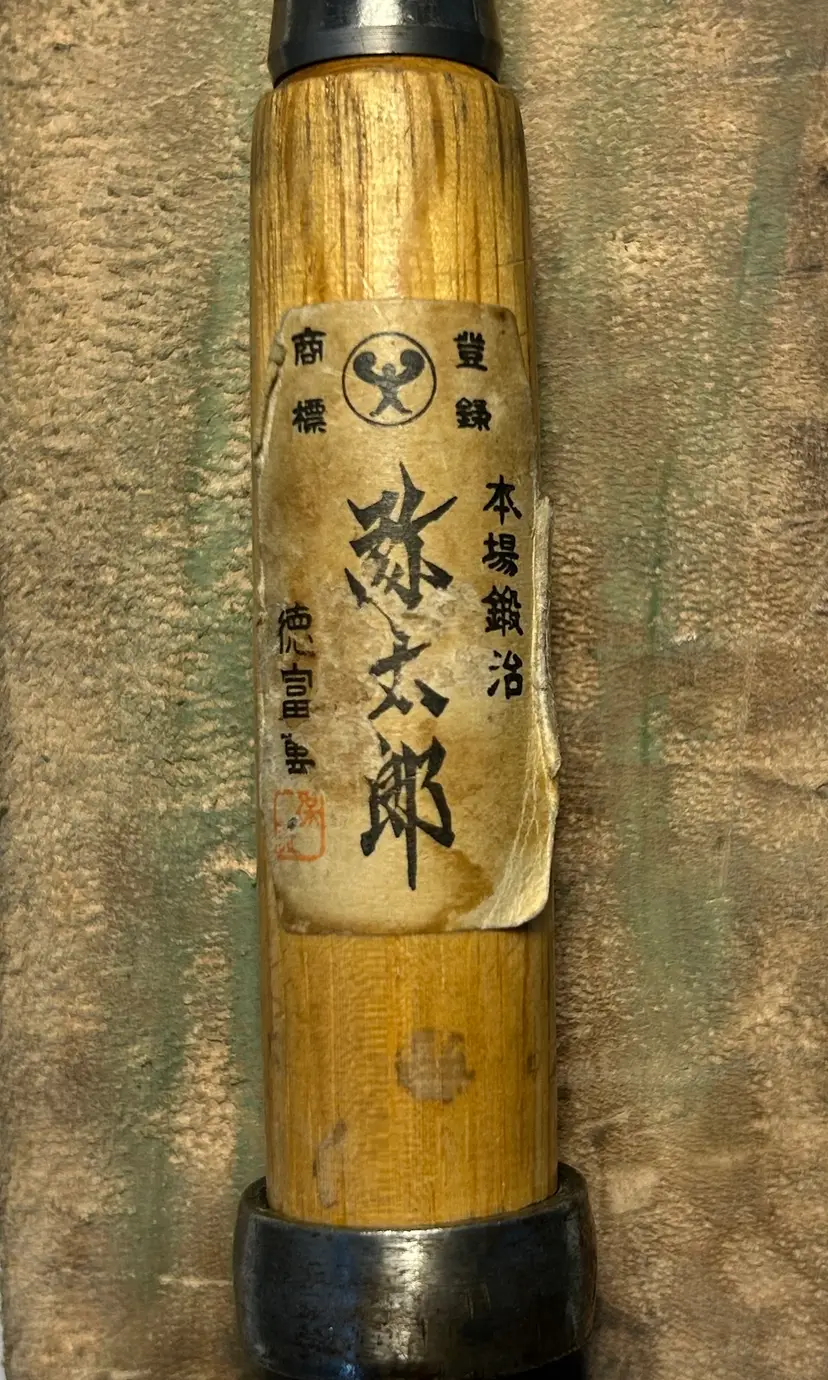 登録
商標
本場鍛冶
弥太郎
徳富萬